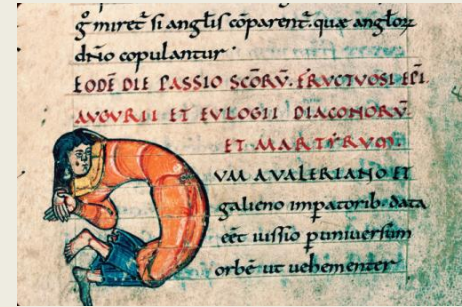 g̊ miret̄ si anglis cōparent̄. quæ anglor̄
dn̄o copulantur·
EODĒ DIE PASSIO SCŌRŪ. FRUCTUOSI EP̄I.
AUGURII ET EULOGII DIACONORŪ
ET MARTYRUM.
UM A VALERIANO ET
galieno imp̄atorib· data
eēt iussio p̄ uniuersum
orbē ut uehementer